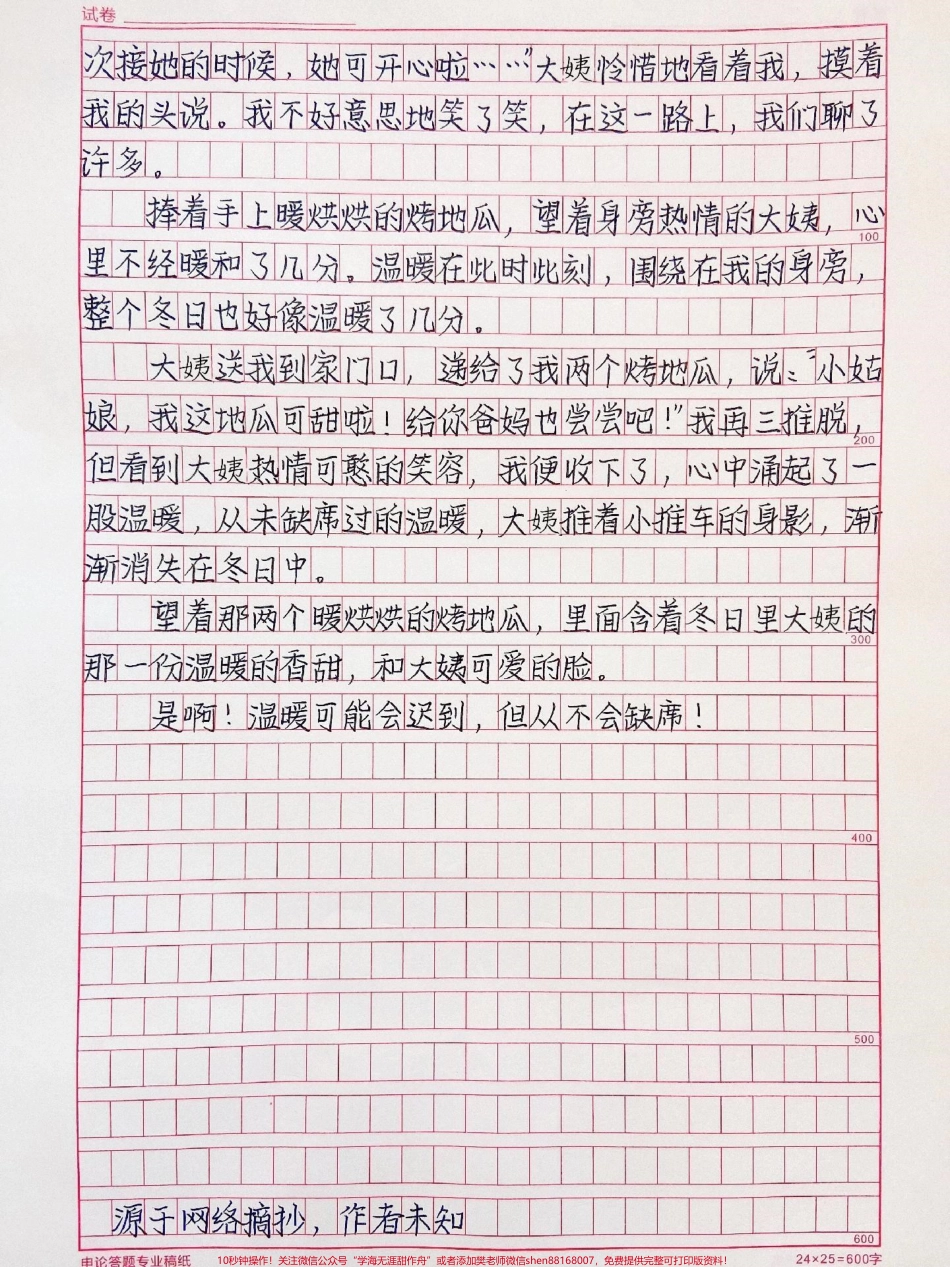 试卷
次接她的时候，她可开心啦……”大姨怜惜地看着我，摸着
我的头说。我不好意思地笑了笑，在这一路上，我们聊了
许多。
捧着手上暖烘烘的烤地瓜，望着身旁热情的大姨，心
100
里不经暖和了几分。温暖在此时此刻，围绕在我的身旁，
整个冬日也好像温暖了几分。
大姨送我到家门口，递给了我两个烤地瓜，说：“小姑
娘，我这地瓜可甜啦！给你爸妈也尝尝吧！”我再三推脱，
200
但看到大姨热情可憨的笑容，我便收下了，心中涌起了一
股温暖，从未缺席过的温暖，大姨推着小推车的身影，渐
渐消失在冬日中。
望着那两个暖烘烘的烤地瓜，里面含着冬日里大姨的
300
那一份温暖的香甜，和大姨可爱的脸。
是啊！温暖可能会迟到，但从不会缺席！
400
500
源于网络摘抄，作者未知
600
申论答题专业稿纸 10秒钟操作！关注微信公众号“学海无涯甜作舟”或者添加樊老师微信shen88168007，免费提供完整可打印版资料！ 24×25=600字